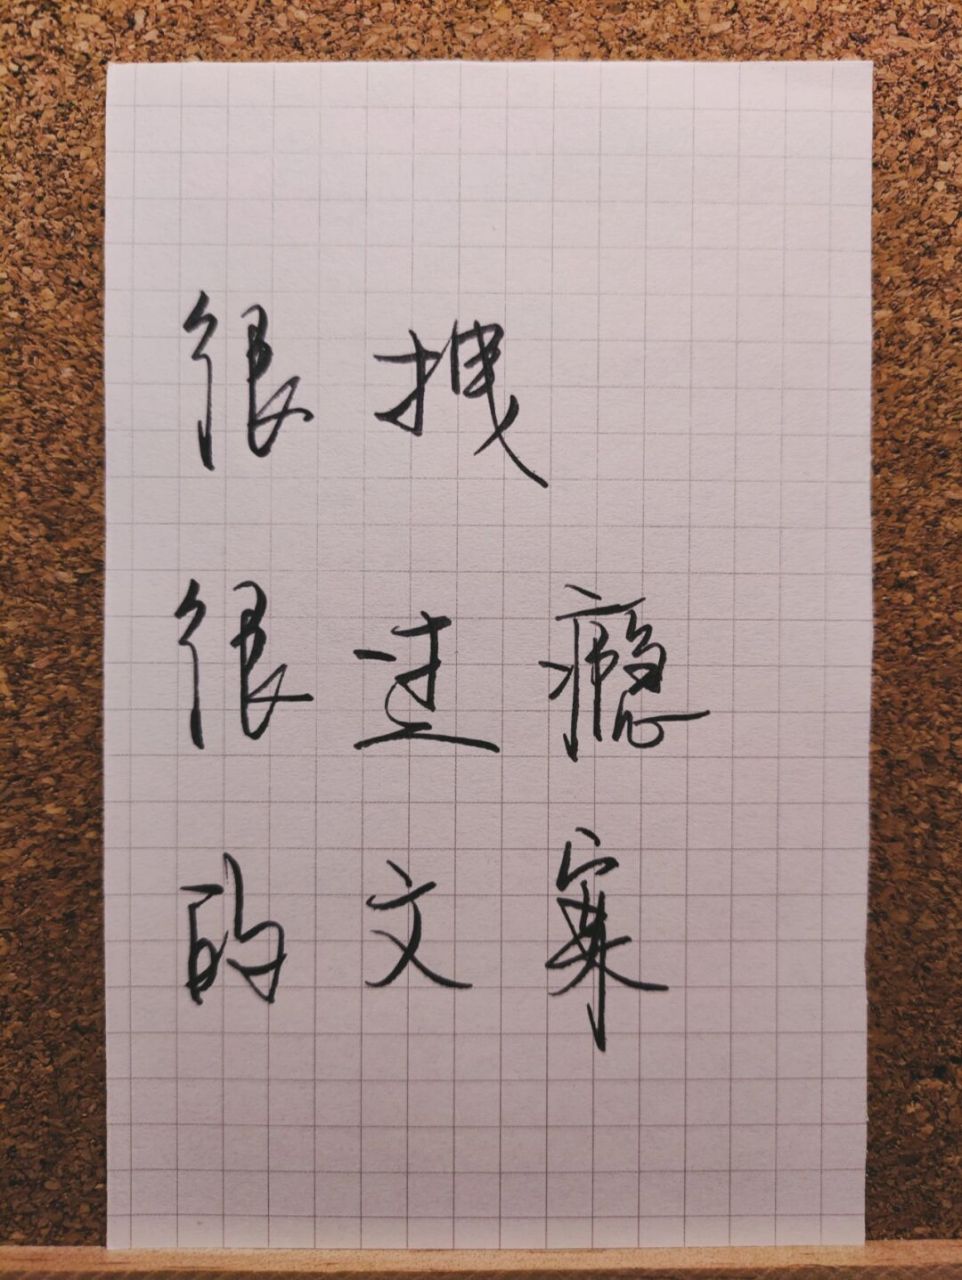 很拽
很过瘾
的文案